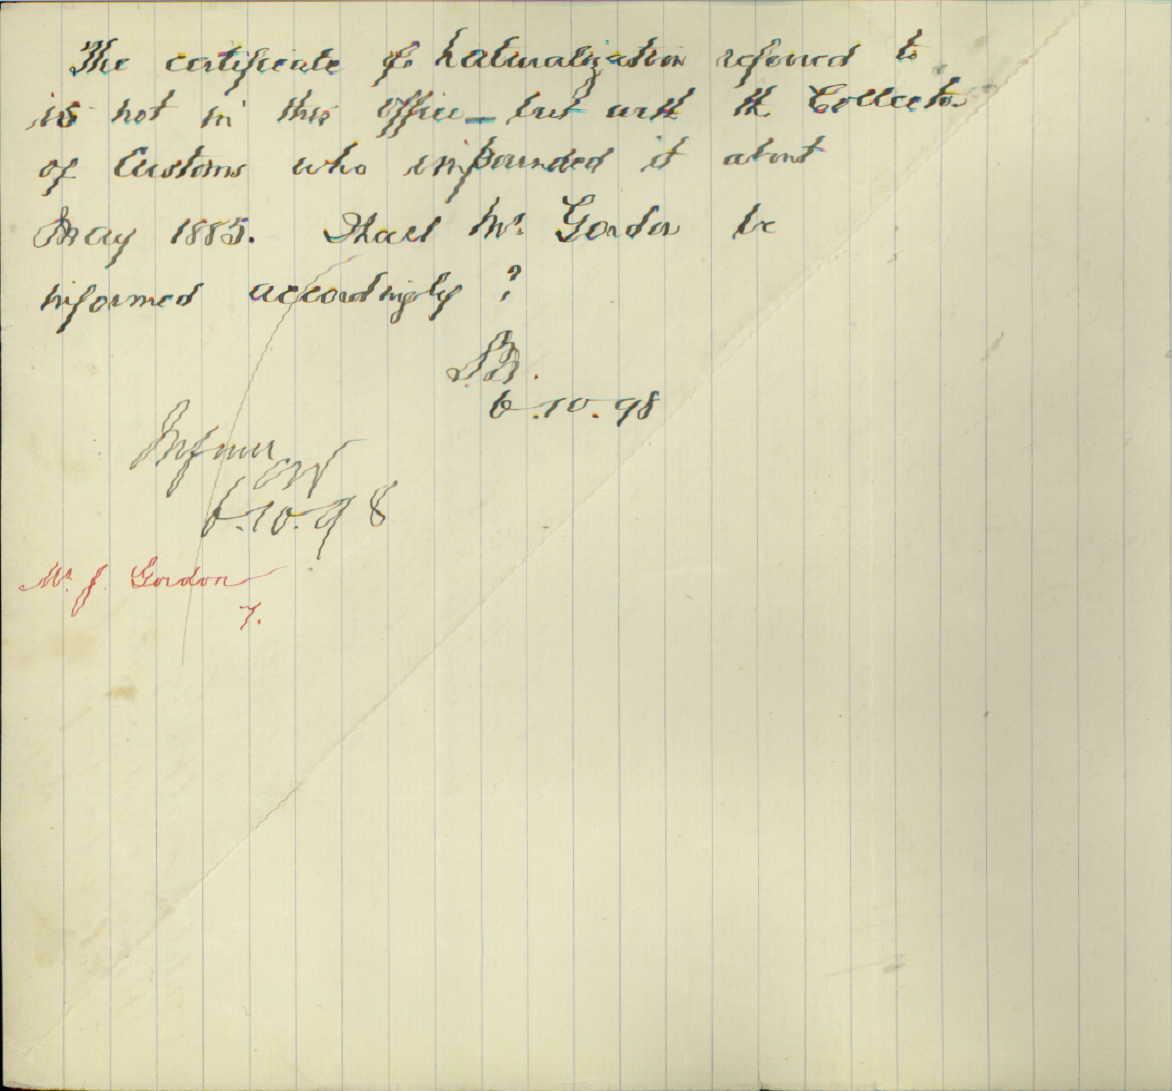 The certificate of naturalization referred to
is not in this office _ but with the Collector
of Customs who impounded it about
May 1885. Shall Mr. Gordon be
informed accordingly ?
6.10.98
Inform
6.10.98
Mr. J. Gordon
7.